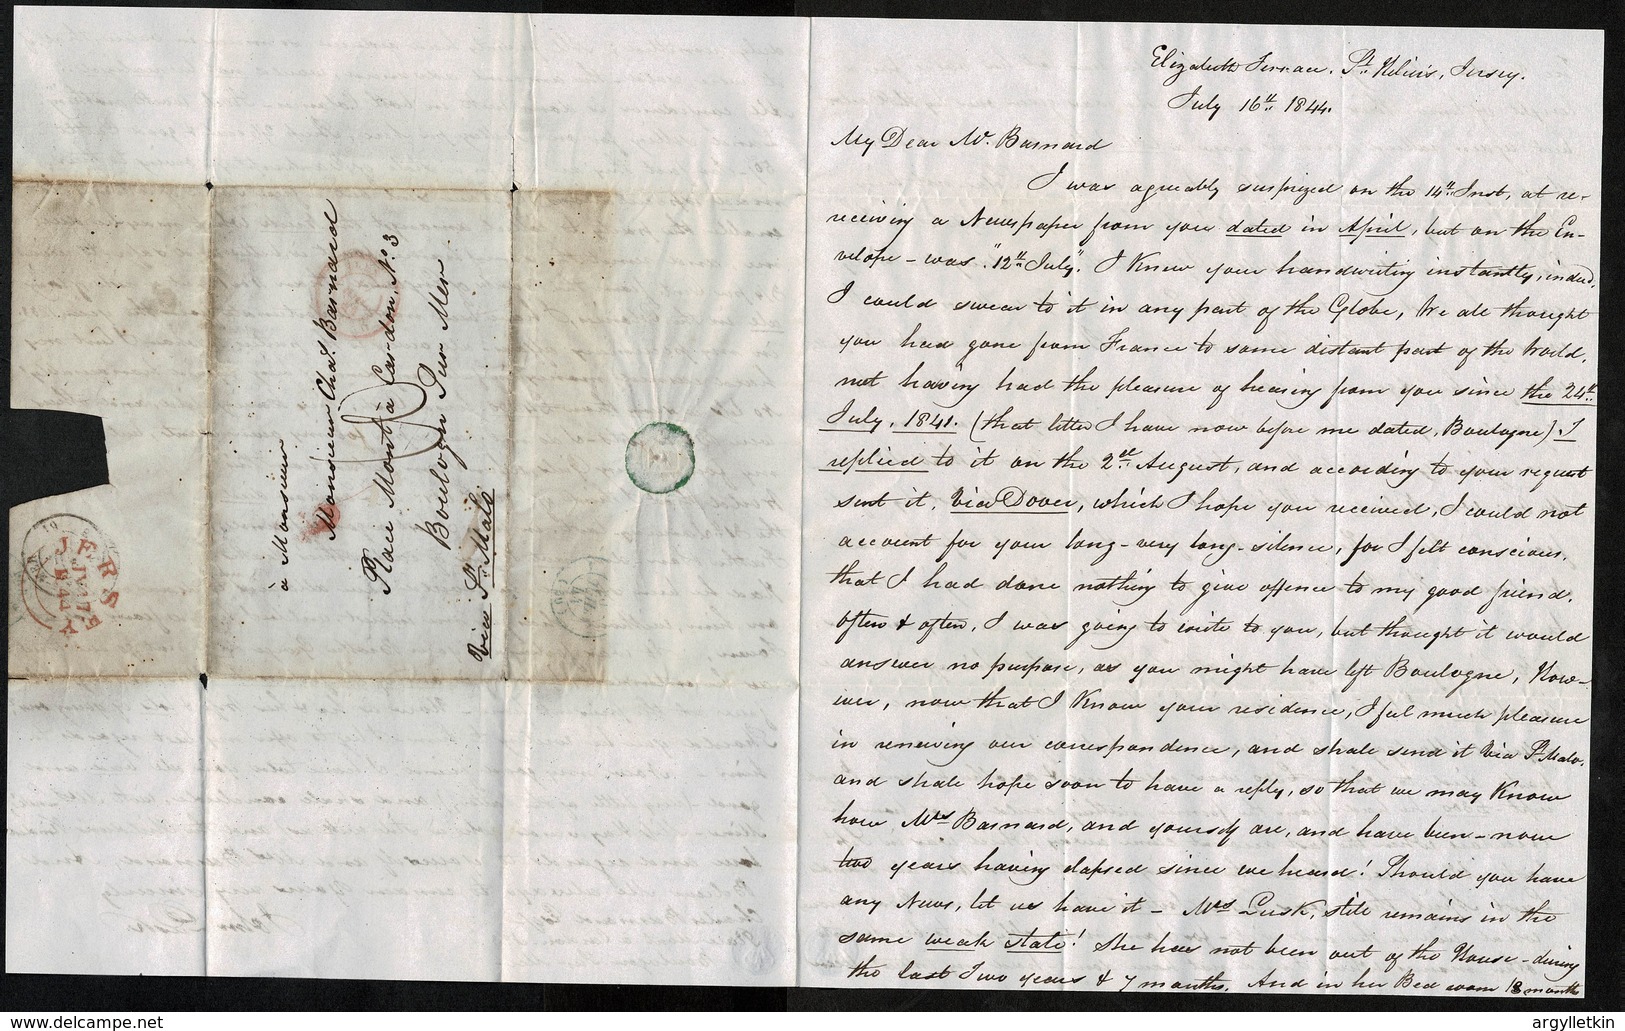 à Monsieur
Monsieur Chas. Barnard
Place Mont à Cardon, No. 3
Boulogne Sur Mer
Via St. Malo
JERSEY
JY 17
1844
Elizabeth Terrace, St. Heliers, Jersey.
July 16th 1844.
My Dear Mr. Barnard
I was agreeably surprized on the 14th Inst, at re-
receiving a Newspaper from you dated in April, but on the En-
velope - was "12th July". I Knew your handwriting instantly, indeed,
I could swear to it in any part of the Globe, We all thought
you had gone from France to some distant part of the World,
not having had the pleasure of hearing from you since the 24th
July, 1841. (that letter I have now before me dated, Boulogne). I
replied to it on the 2nd August, and according to your request
sent it, Via Dover, which I hope you received, I could not
account for your long - very long - silence, for I felt conscious,
that I had done nothing to give offence to my good friend.
often & often, I was going to write to you, but thought it would
answer no purpose, as you might have left Boulogne, How-
ever, now that I Know your residence, I feel much pleasure
in renewing our correspondence, and shall send it Via St. Malo,
and shall hope soon to have a reply, so that we may Know
how Mrs Barnard, and yourself are, and have been - now
two years having elapsed since we heard! Should you have
any News, let us have it - Mrs Lusk, still remains in the
same weak state! She has not been out of the House - during
the last Two years & 7 months. And in her Bed room 18 months
argylletkin